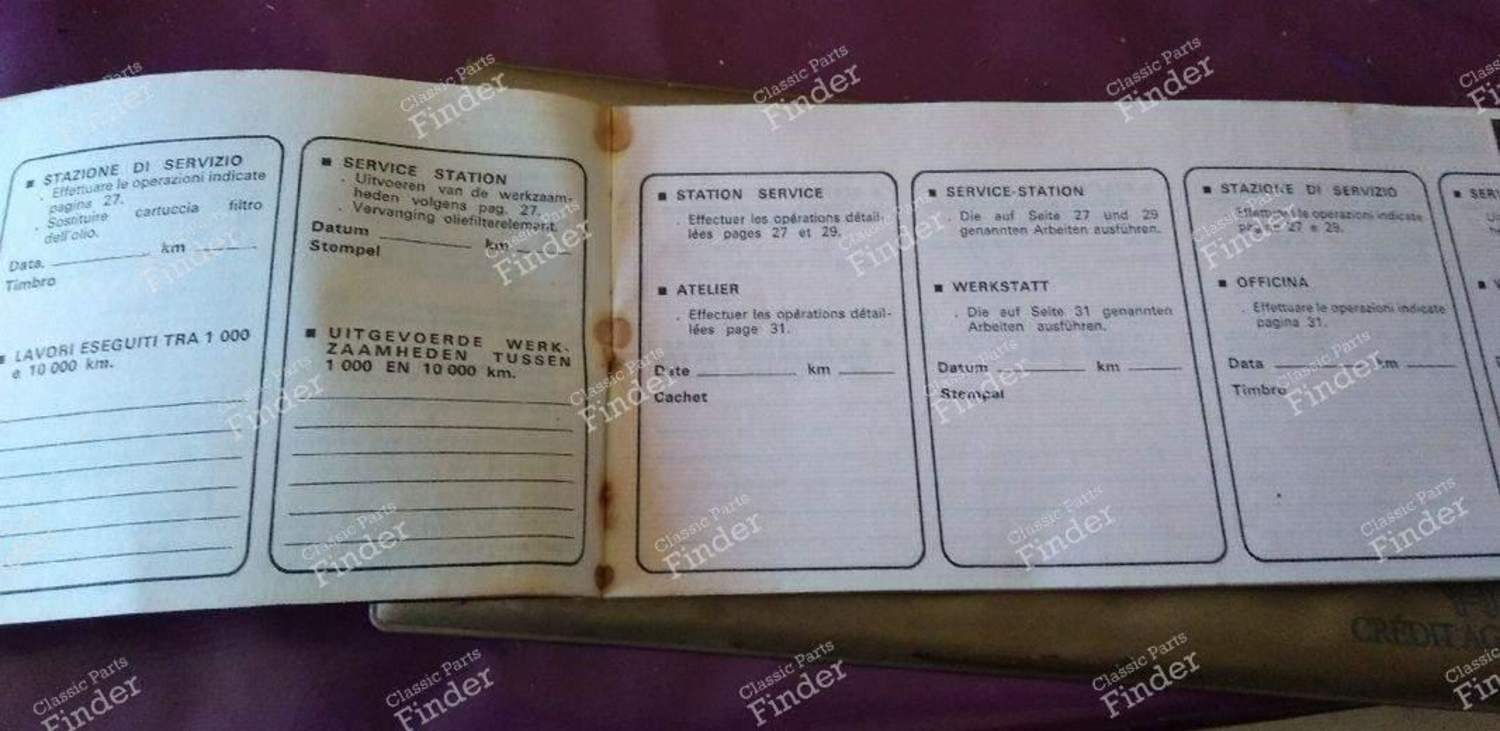 ■ STAZIONE DI SERVIZIO
. Effettuare le operazioni indicate
pagina 27.
. Sostituire cartuccia filtro
dell'olio.
Data. ______ km ______
Timbro
■ LAVORI ESEGUITI TRA 1 000
e 10 000 km.
■ SERVICE STATION
. Uitvoeren van de werkzaam-
heden volgens pag. 27.
. Vervanging oliefilterelement.
Datum ______ km ______
Stempel
■ UITGEVOERDE WERK-
ZAAMHEDEN TUSSEN
1 000 EN 10 000 km.
■ STATION SERVICE
. Effectuer les opérations détail-
lées pages 27 et 29.
■ ATELIER
. Effectuer les opérations détail-
lées page 31.
Date ______ km ______
Cachet
■ SERVICE-STATION
. Die auf Seite 27 und 29
genannten Arbeiten ausführen.
■ WERKSTATT
. Die auf Seite 31 genannten
Arbeiten ausführen.
Datum ______ km ______
Stempel
■ STAZIONE DI SERVIZIO
Effettuare le operazioni indicate
pagine 27 e 29.
■ OFFICINA
. Effettuare le operazioni indicate
pagina 31.
Data ______ km ______
Timbro
■ SER
CRÉDIT AG
Classic Parts
Finder